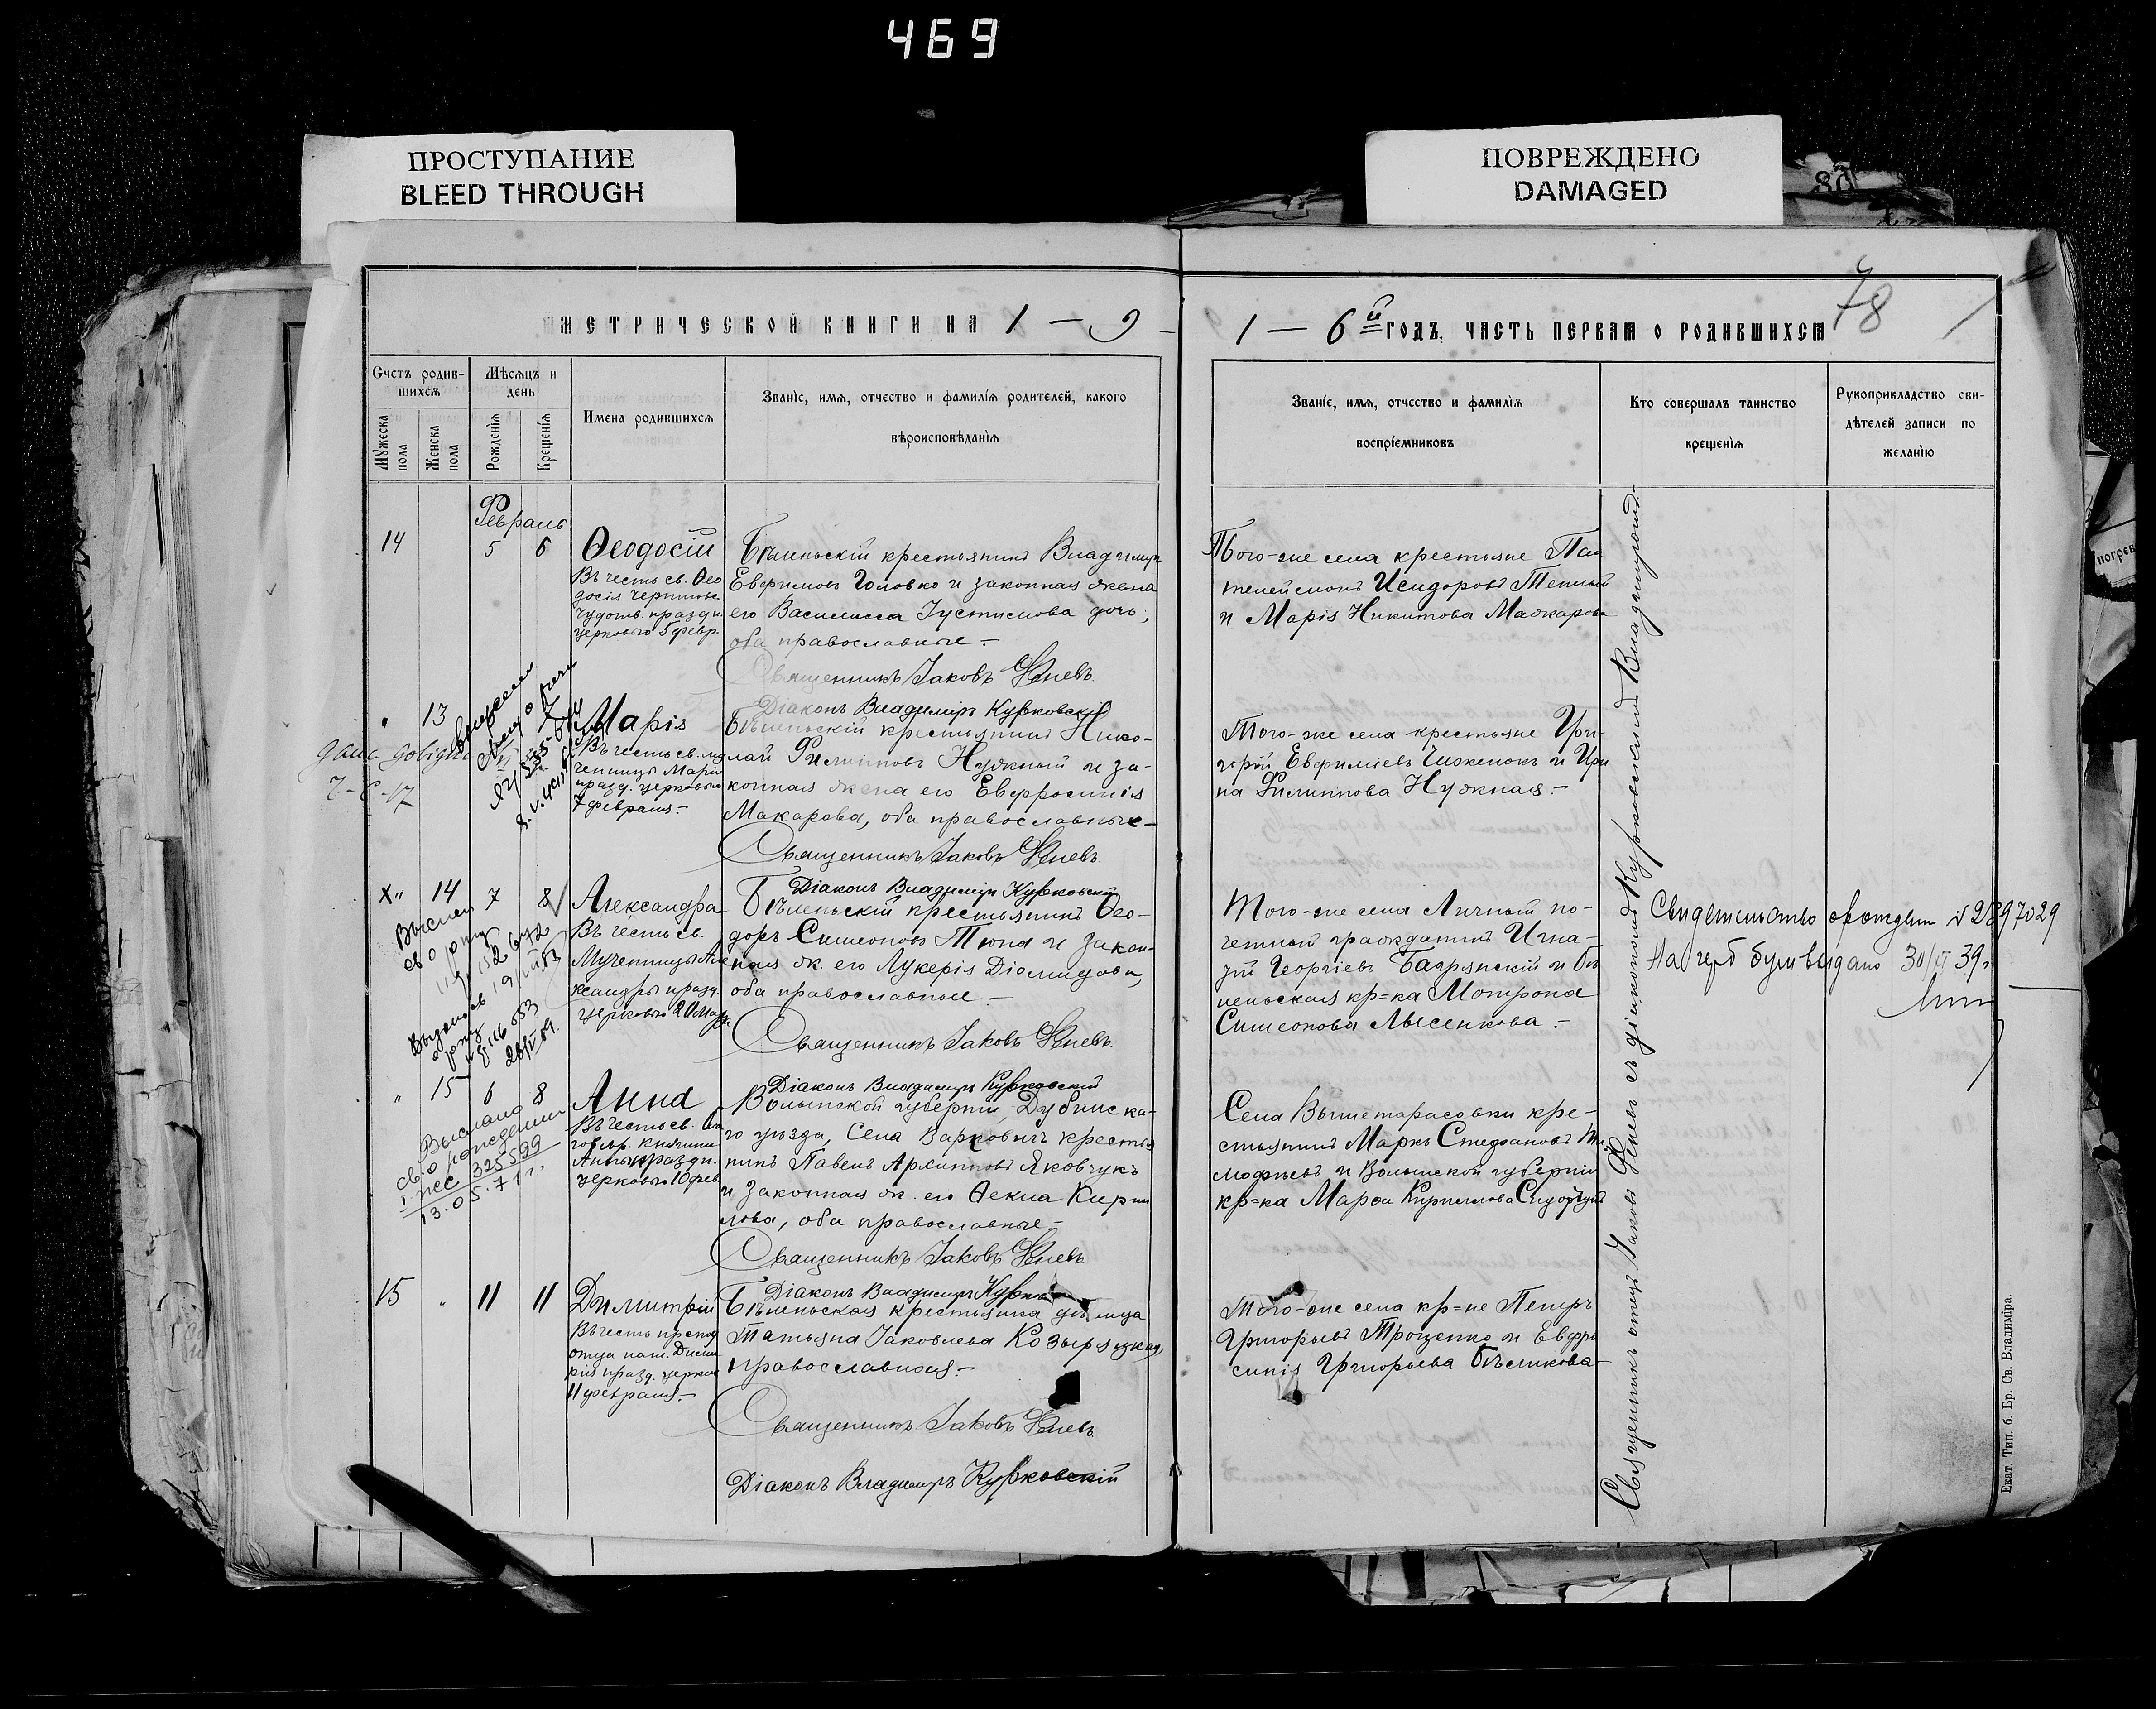 469
ПРОСТУПАНИЕ
BLEED THROUGH
ПОВРЕЖДЕНО
DAMAGED
80
погреб
МЕТРИЧЕСКОЙ КНИГИ НА 1 — 9
1 — 6й ГОДЪ. ЧАСТЬ ПЕРВАЯ О РОДИВШИХСЯ
78
Счетъ родив-
шихся
Мужеска пола
Женска пола
Мѣсяцъ и
день
Рожденія
Крещенія
Имена родившихся
Званіе, имя, отчество и фамилія родителей, какого
вѣроисповѣданія
Званіе, имя, отчество и фамилія
воспріемниковъ
Кто совершалъ таинство
крещенія
Рукоприкладство сви-
дѣтелей записи по
желанію
Февраль
14 5 6
Ѳеодосій
Въ честь св. Ѳео
досія Чернигов.
чудотв. праздн.
церковью 5 февр.
Бѣленьскій крестьянинъ Владимиръ
Евфимовъ Головко и законная жена
его Василисса Іустинова дочь;
оба православные —
Священникъ Іаковъ
Діаконъ Владиміръ Курковскій
Того-же села крестьяне Пан
телеймонъ Исидоровъ Теплый
и Марія Никитова Мажарова
" 13
7
Марія
Въ честь св. му
ченицы Маріи
празд. церковью
7 февраля. —
Бѣленьскій крестьянинъ Нико-
лай Филипповъ Нужный и за-
конная жена его Евфросинія
Макарова, оба православные —
Священникъ Іаковъ
Діаконъ Владиміръ Курковскій
Того-же села крестьяне Гри-
горій Евфиміевъ Чиженокъ и Ири
на Филиппова Нужная. —
х" 14 7 8
Александра
Въ честь св.
Мученицы Але
ксандры празд.
церковью 20 Мар.
Бѣленьскій крестьянинъ Ѳео-
доръ Симеоновъ Тюпа и закон-
ная ж. его Лукерія Діомидова,
оба православные —
Священникъ Іаковъ
Діаконъ Владиміръ Курковскій
Того-же села Личный по-
четный гражданинъ Игна-
тій Георгіевъ Базрянскій и Бѣ
леньская кр=ка Матрона
Симеонова Лысенкова. —
Свидетельство о рожден
На герб бум выдано 30/VI 39 г
" 15 6 8
Выслано
св о рождении
I ЖЕС 325599
13.05.7
Анна
Въ честь св. бла
говѣр. княгини
Анны праздн.
церковью 10 фев.
Волынской губерніи, Дубнска-
го уѣзда, Села Варковичъ крестья
нинъ Павелъ Архипповъ Яковчукъ
и законная ж. его Ѳекла Кирил
лова, оба православные —
Священникъ Іаковъ
Діаконъ Владиміръ Курковскій
Села Вышетарасовки кре-
стьянинъ Маркъ Стефановъ Ти
мофѣевъ и Волынской губерніи
кр=ка Марѳа Кириллова Сидорчукъ
15 " 11 11
Димитрій
Въ честь препод
отца наш. Дими
рія празд. церков
11 февраля. —
Бѣленьская крестьянка дѣвица
Татьяна Іаковлева Козыряцкая,
православная. —
Священникъ Іаковъ
Діаконъ Владиміръ Курковскій
Того-же села кр=не Петръ
Григорьевъ Троценко и Евфро
синія Григорьева Бѣликова —
Священникъ отецъ Іаковъ съ діакономъ Курковскимъ Владиміромъ
Екат. Тип. б. Бр. Св. Владиміра.